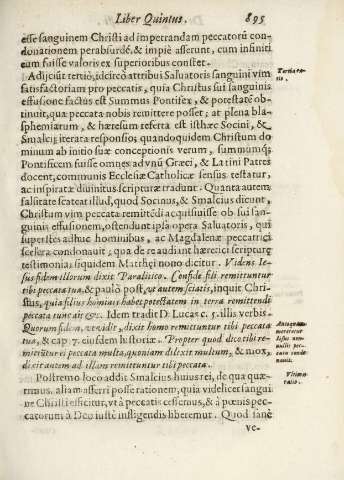 Liber Quintus. 895
esse sanguinem Christi ad impetrandam peccatorũ con-
donationem perabsurdè, & impiè asserunt, cum infiniti
eum fuisse valoris ex superioribus constet.
Adijcit tertiò, idcirco attribui Saluatoris sanguini vim
Tertia ra-
tio.
satisfactoriam pro peccatis, quia Christus sui sanguinis
effusione factus est Summus Pontifex, & potestatẽ ob-
tinuit, qua peccata nobis remittere posset; at plena bla-
sphemiarum, & hæresum referta est isthæc Socini, &
Smalcij iterata responsio; quandoquidem Christum do
minum ab initio suæ conceptionis verum, summumq;
Pontificem fuisse omnes ad vnũ Græci, & Latini Patres
docent, communis Ecclesiæ Catholicæ sensus testatur,
ac inspiratæ diuinitus scripturæ tradunt. Quanta autem
falsitate scateat illud, quod Socinus, & Smalcius dicunt,
Christum vim peccata remittẽdi acquisiuisse ob sui san-
guinis effusionem, ostendunt ipsa opera Saluatoris, qui
superstes adhuc hominibus, ac Magdalenæ peccatrici
scelera condonauit; qua de re audiant hæretici scripturę
testimonia, siquidem Matthęi nono dicitur. Videns Ie-
sus fidem illorum dixit Paralitico. Confide fili remittuntur
tibi peccata tua, & paulò post, vt autem sciatis, inquit Chri-
stus, quia filius hominis habet potestatem in terra remittendi
peccata tunc ait &c. Idem tradit D. Lucas c. 5. illis verbis.
Quorum fidem, vt vidit, dixit homo remittuntur tibi peccata
tua, & cap. 7. eiusdem historiæ. Propter quod dico tibi re-
mittũtur ei peccata multa, quoniam dilexit multum, & mox,
dixit autem ad illam remittuntur tibi peccata.
Postremo loco addit Smalcius huius rei, de qua quæ-
Vltima
ratio.
rimus, aliam afferri posse rationem, quia videlicet sangui
ne Christi efficitur, vt à peccatis cessemus, & à pœnis pec-
catorum à Deo iustè infligendis liberemur. Quod sanè
ve-